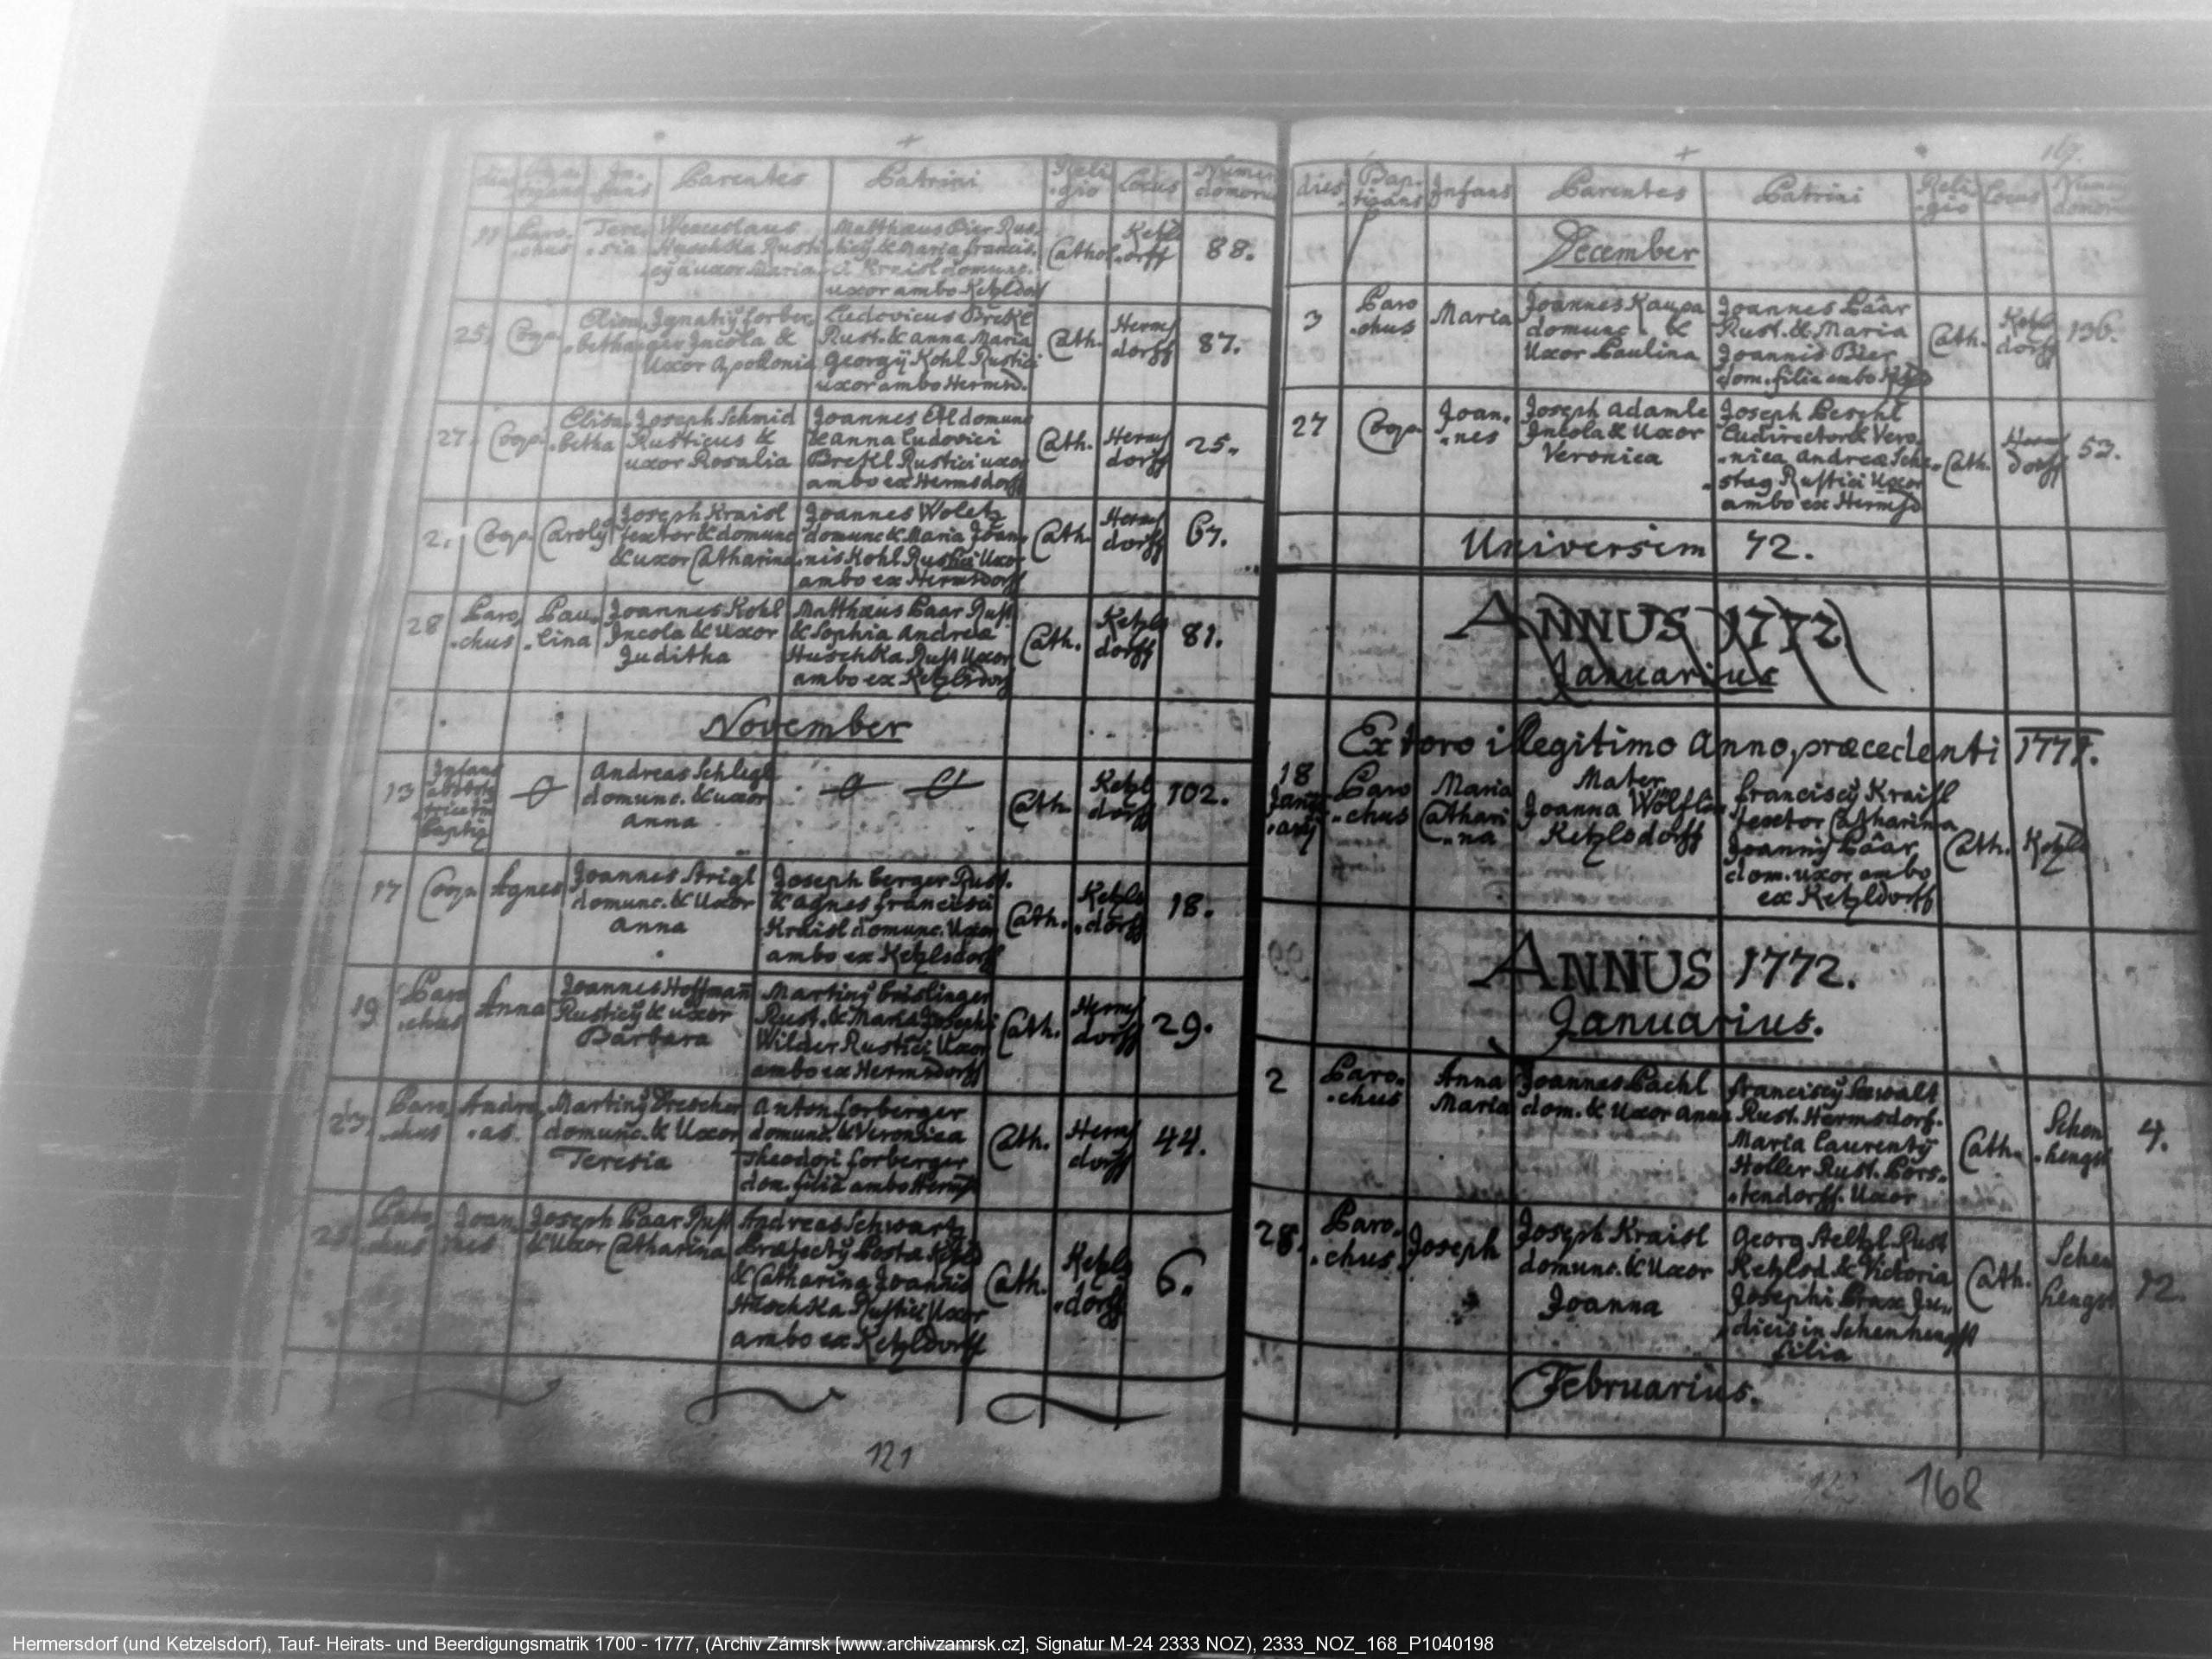 Parentes Patrini Reli-gio Locus Numer domorum
11 Paro-chus Tere-sia Wenceslaus Huschka Rusticy & uxor Maria
Matthæus Bier Rus-
ticy & Maria Francis-
ci Kraisl domunc.
uxor ambo Ketzldorf
Cathol. Ketzl-dorff 88.
25. Coop. Elisa-betha
Ignatiy Forber-
ger Incola &
Uxor Apollonia
Ludovicus Brekl
Rust. & Anna Maria
Georgÿ Kohl Rustici
uxor ambo Hermsd.
Cath. Herms dorff 87.
27. Coop. Elisa-betha
Joseph Schmid
Rusticus &
uxor Rosalia
Joannes Etl domunc
& Anna Ludovici
Brekl Rustici uxor
ambo ex Hermsdorff
Cath. Herms dorff 25.
2. Coop. Caroly
Joseph Kraisl
textor & domunc
& uxor Catharina
Joannes Woletz
domunc & Maria Joan-
nis Kohl Rustici Uxor
ambo ex Hermsdorff
Cath. Herms dorff 67.
28 Paro-chus Pau-lina
Joannes Kohl
Incola & Uxor
Juditha
Matthæus Paar Rust
& Sophia Andreæ
Huschka Rust Uxor
ambo ex Ketzlsdorf
Cath. Ketzls dorff 81.
November
13 Infans
Andreas Schlegl
domunc. & uxor
Anna
Cath. Ketzl dorff 102.
17 Coop Agnes
Joannes Strigl
domunc. & Uxor
Anna
Joseph Berger Rust.
& Agnes Francisci
Kraisl domunc. Uxor
ambo ex Ketzlsdorff
Cath. Ketzls-dorff 18.
19 Paro-chus Anna
Joannes Hoffman̄
Rusticÿ & uxor
Barbara
Martinÿ Grislinger
Rust. & Maria Josephi
Wilder Rustici Uxor
ambo ex Hermsdorff
Cath. Herms dorff 29.
23. Paro-chus Andre-as
Martinÿ Drescher
domunc. & Uxor
Teresia
Anton Forberger
domunc. & Veronica
Theodori Forberger
dom. filia ambo Hermsd
Cath. Herms dorff 44.
Paro-chus Joan-nes
Joseph Paar Rust
& Uxor Catharina
Andreas Schwartz
Præfectÿ Posta
& Catharina Joannis
Huschka Rustici Uxor
ambo ex Ketzldorff
Cath. Ketzls-dorff 6.
121
dies Bap-tizans Infans Parentes Patrini Reli-gio Locus Numer domorum
December
3 Paro-chus Maria
Joannes Kaupa
domunc. &
Uxor Paulina
Joannes Páar
Rust. & Maria
Joannis Bier
dom. filia ambo
Cath. Ketzls dorff 136.
27 Coop. Joan-nes
Joseph Adamle
Incola & Uxor
Veronica
Joseph Peschl
Ludirector & Vero-
nica Andreæ Sche-
stag Rustici Uxor
ambo ex Hermsd
Cath. Herms dorff 53.
Universim 72.
ANNUS 1772
Januarius
Ex toro illegitimo Anno præcedenti 1771.
18 Janu-arÿ Paro-chus Maria Cathari-na
Mater
Joanna Wölflin
Ketzlsdorff
Franciscÿ Kraisl
textor Catharina
Joannis Páar
dom. uxor ambo
ex Ketzldorff
Cath. Ketzls
ANNUS 1772.
Januarius.
2 Paro-chus Anna Maria
Joannes Pachl
dom. & Uxor Anna
Franciscÿ Sewalt
Rust. Hermsdorf.
Maria Laurentÿ
Holler Rust. Pors-
tendorff. Uxor
Cath. Schen-hengst 4.
28. Paro-chus Joseph
Joseph Kraisl
domunc. & Uxor
Joanna
Georg Steltzl Rust
Ketzlsd. & Victoria
Josephi Prax Ju-
dicis in Schenhengst
filia
Cath. Schen hengst 12.
Februarius.
168
Hermersdorf (und Ketzelsdorf), Tauf- Heirats- und Beerdigungsmatrik 1700 - 1777, (Archiv Zámrsk [www.archivzamrsk.cz], Signatur M-24 2333 NOZ), 2333_NOZ_168_P1040198